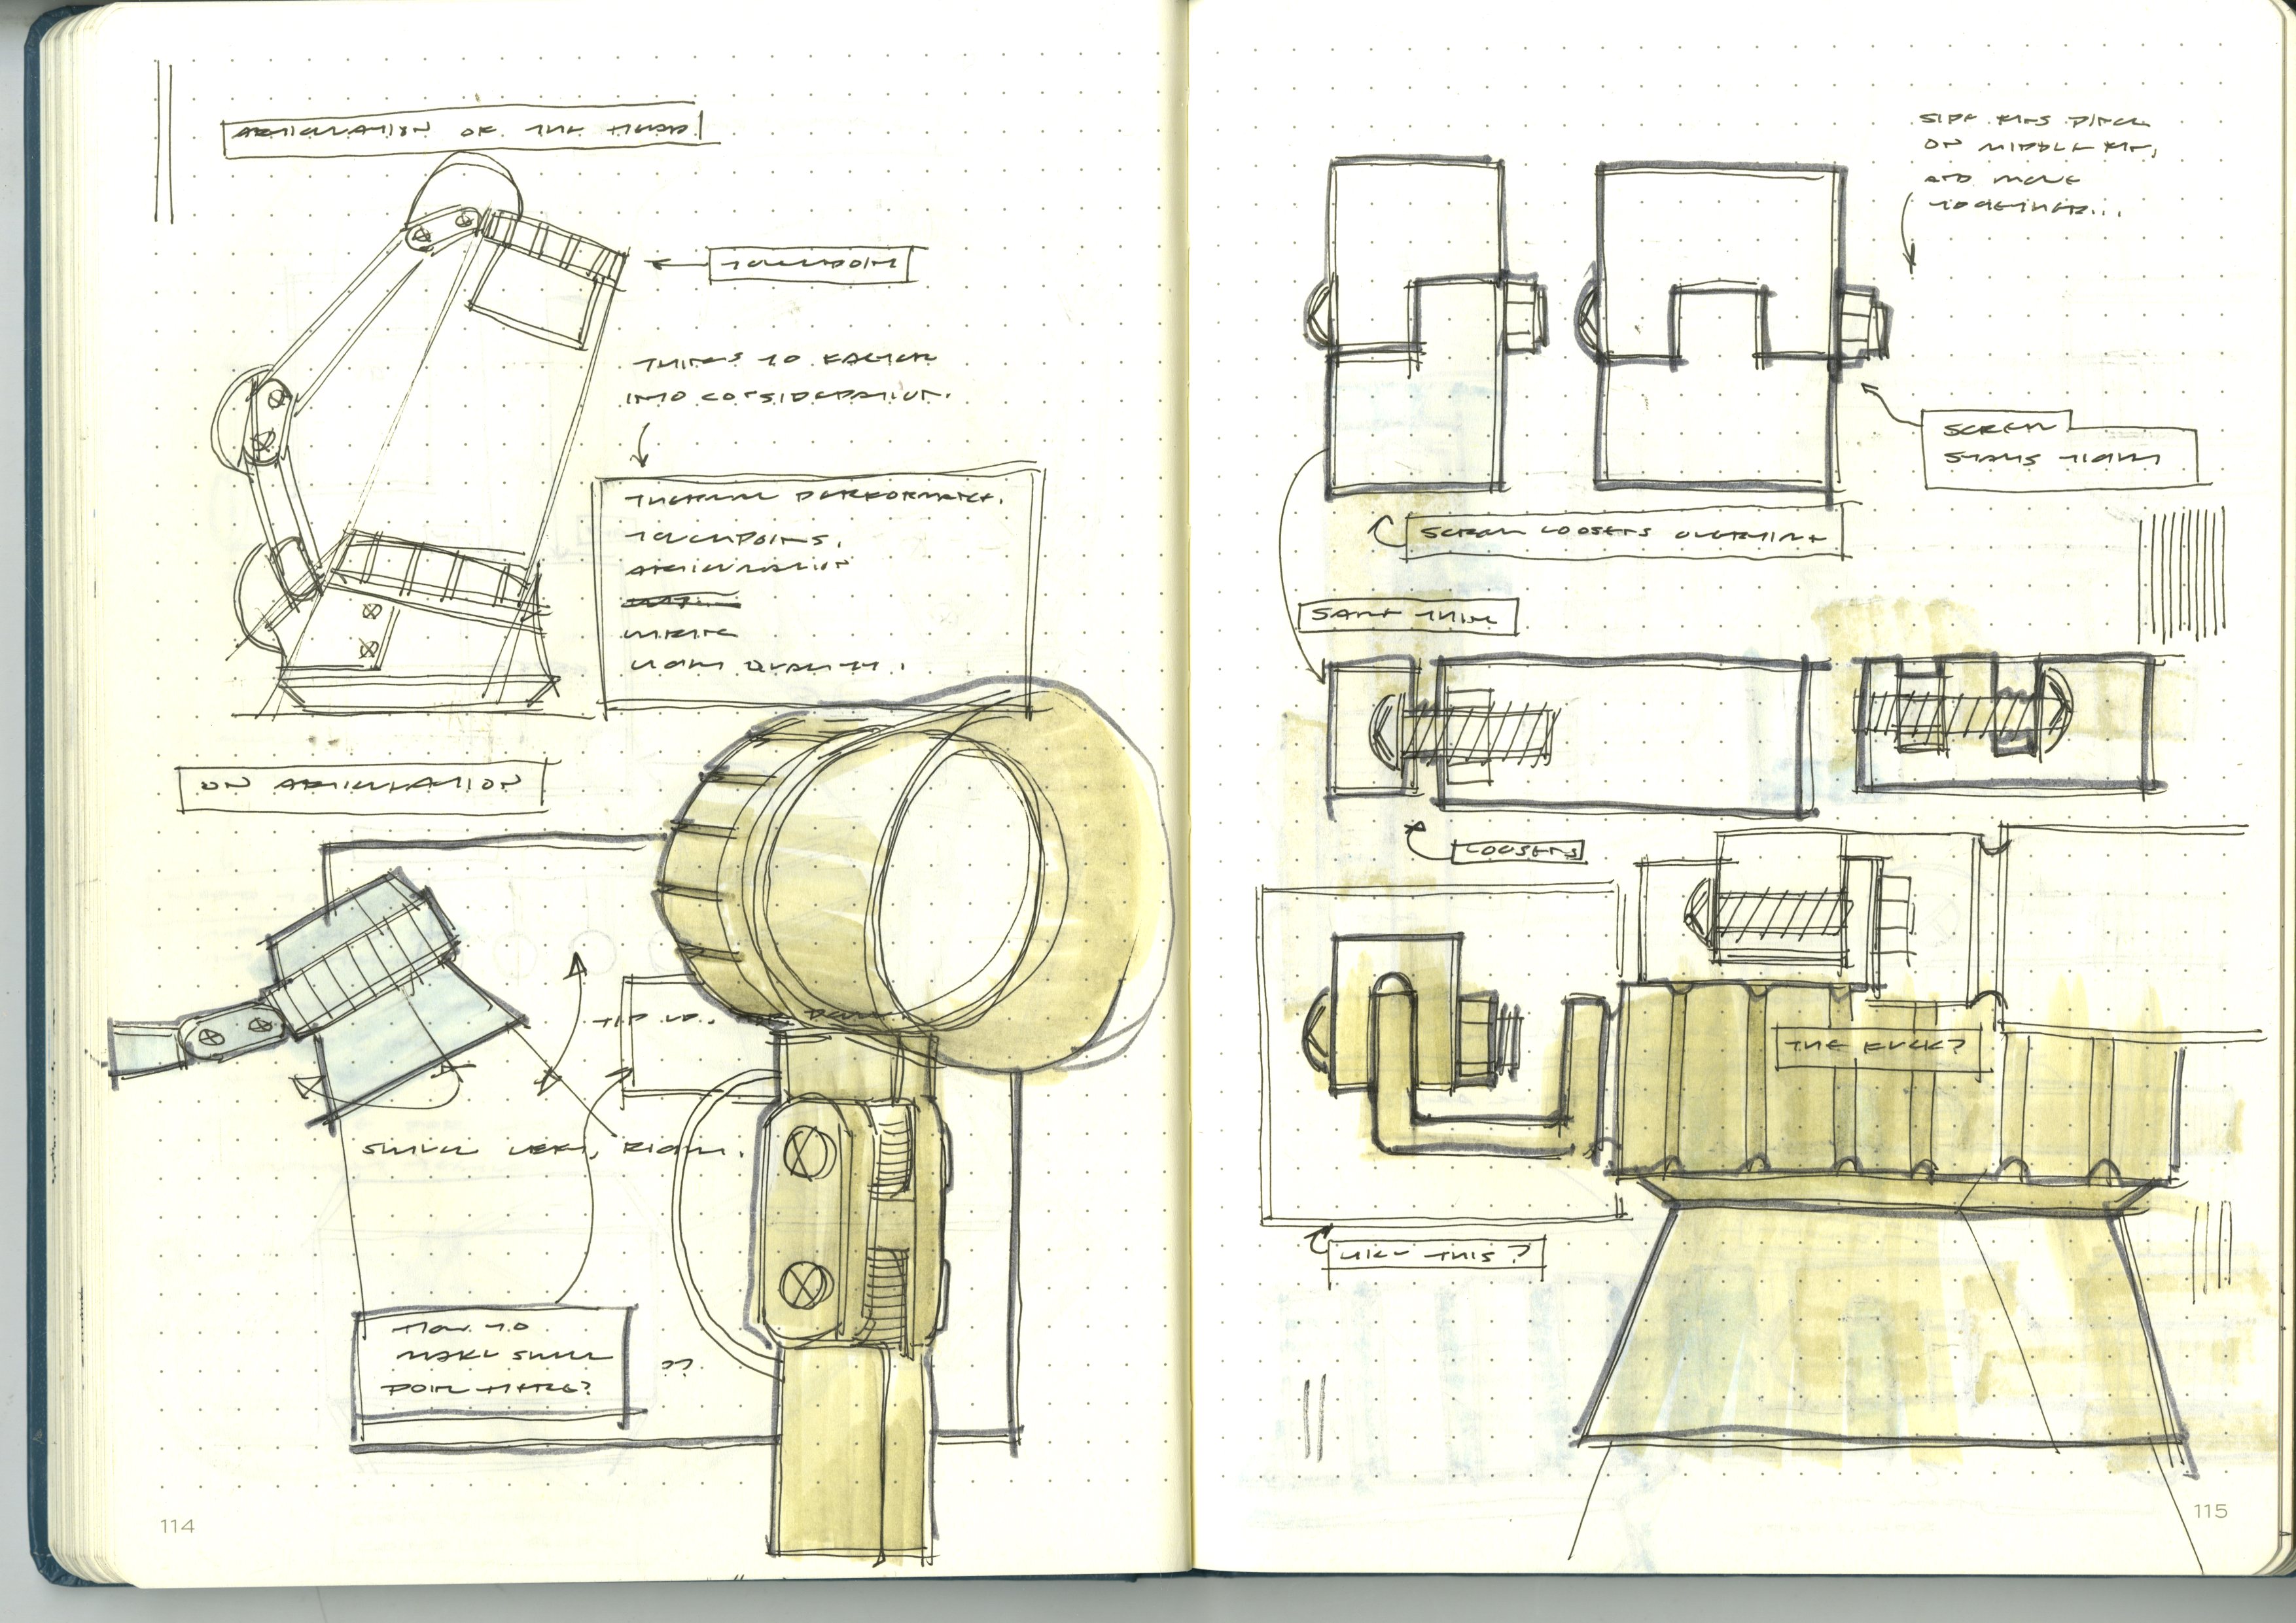 ARTICULATION OF THE HEAD
TOUCHPOINT
THINGS TO FACTOR
INTO CONSIDERATION.
THERMAL PERFORMANCE.
TOUCHPOINTS.
ARTICULATION
WIRING
LIGHT QUALITY.
ON ARTICULATION
TIP UP, DOWN
SWIVEL LEFT, RIGHT.
HOW TO
MAKE SWIVEL
POINT HERE?
??
114
SIDE BITS PINCH
ON MIDDLE BIT,
AND MOVE
TOGETHER...
SCREW
STAYS TIGHT
SCREW LOOSENS OVERTIME
SAME THING
LOOSENS
THE FUCK?
LIKE THIS?
115